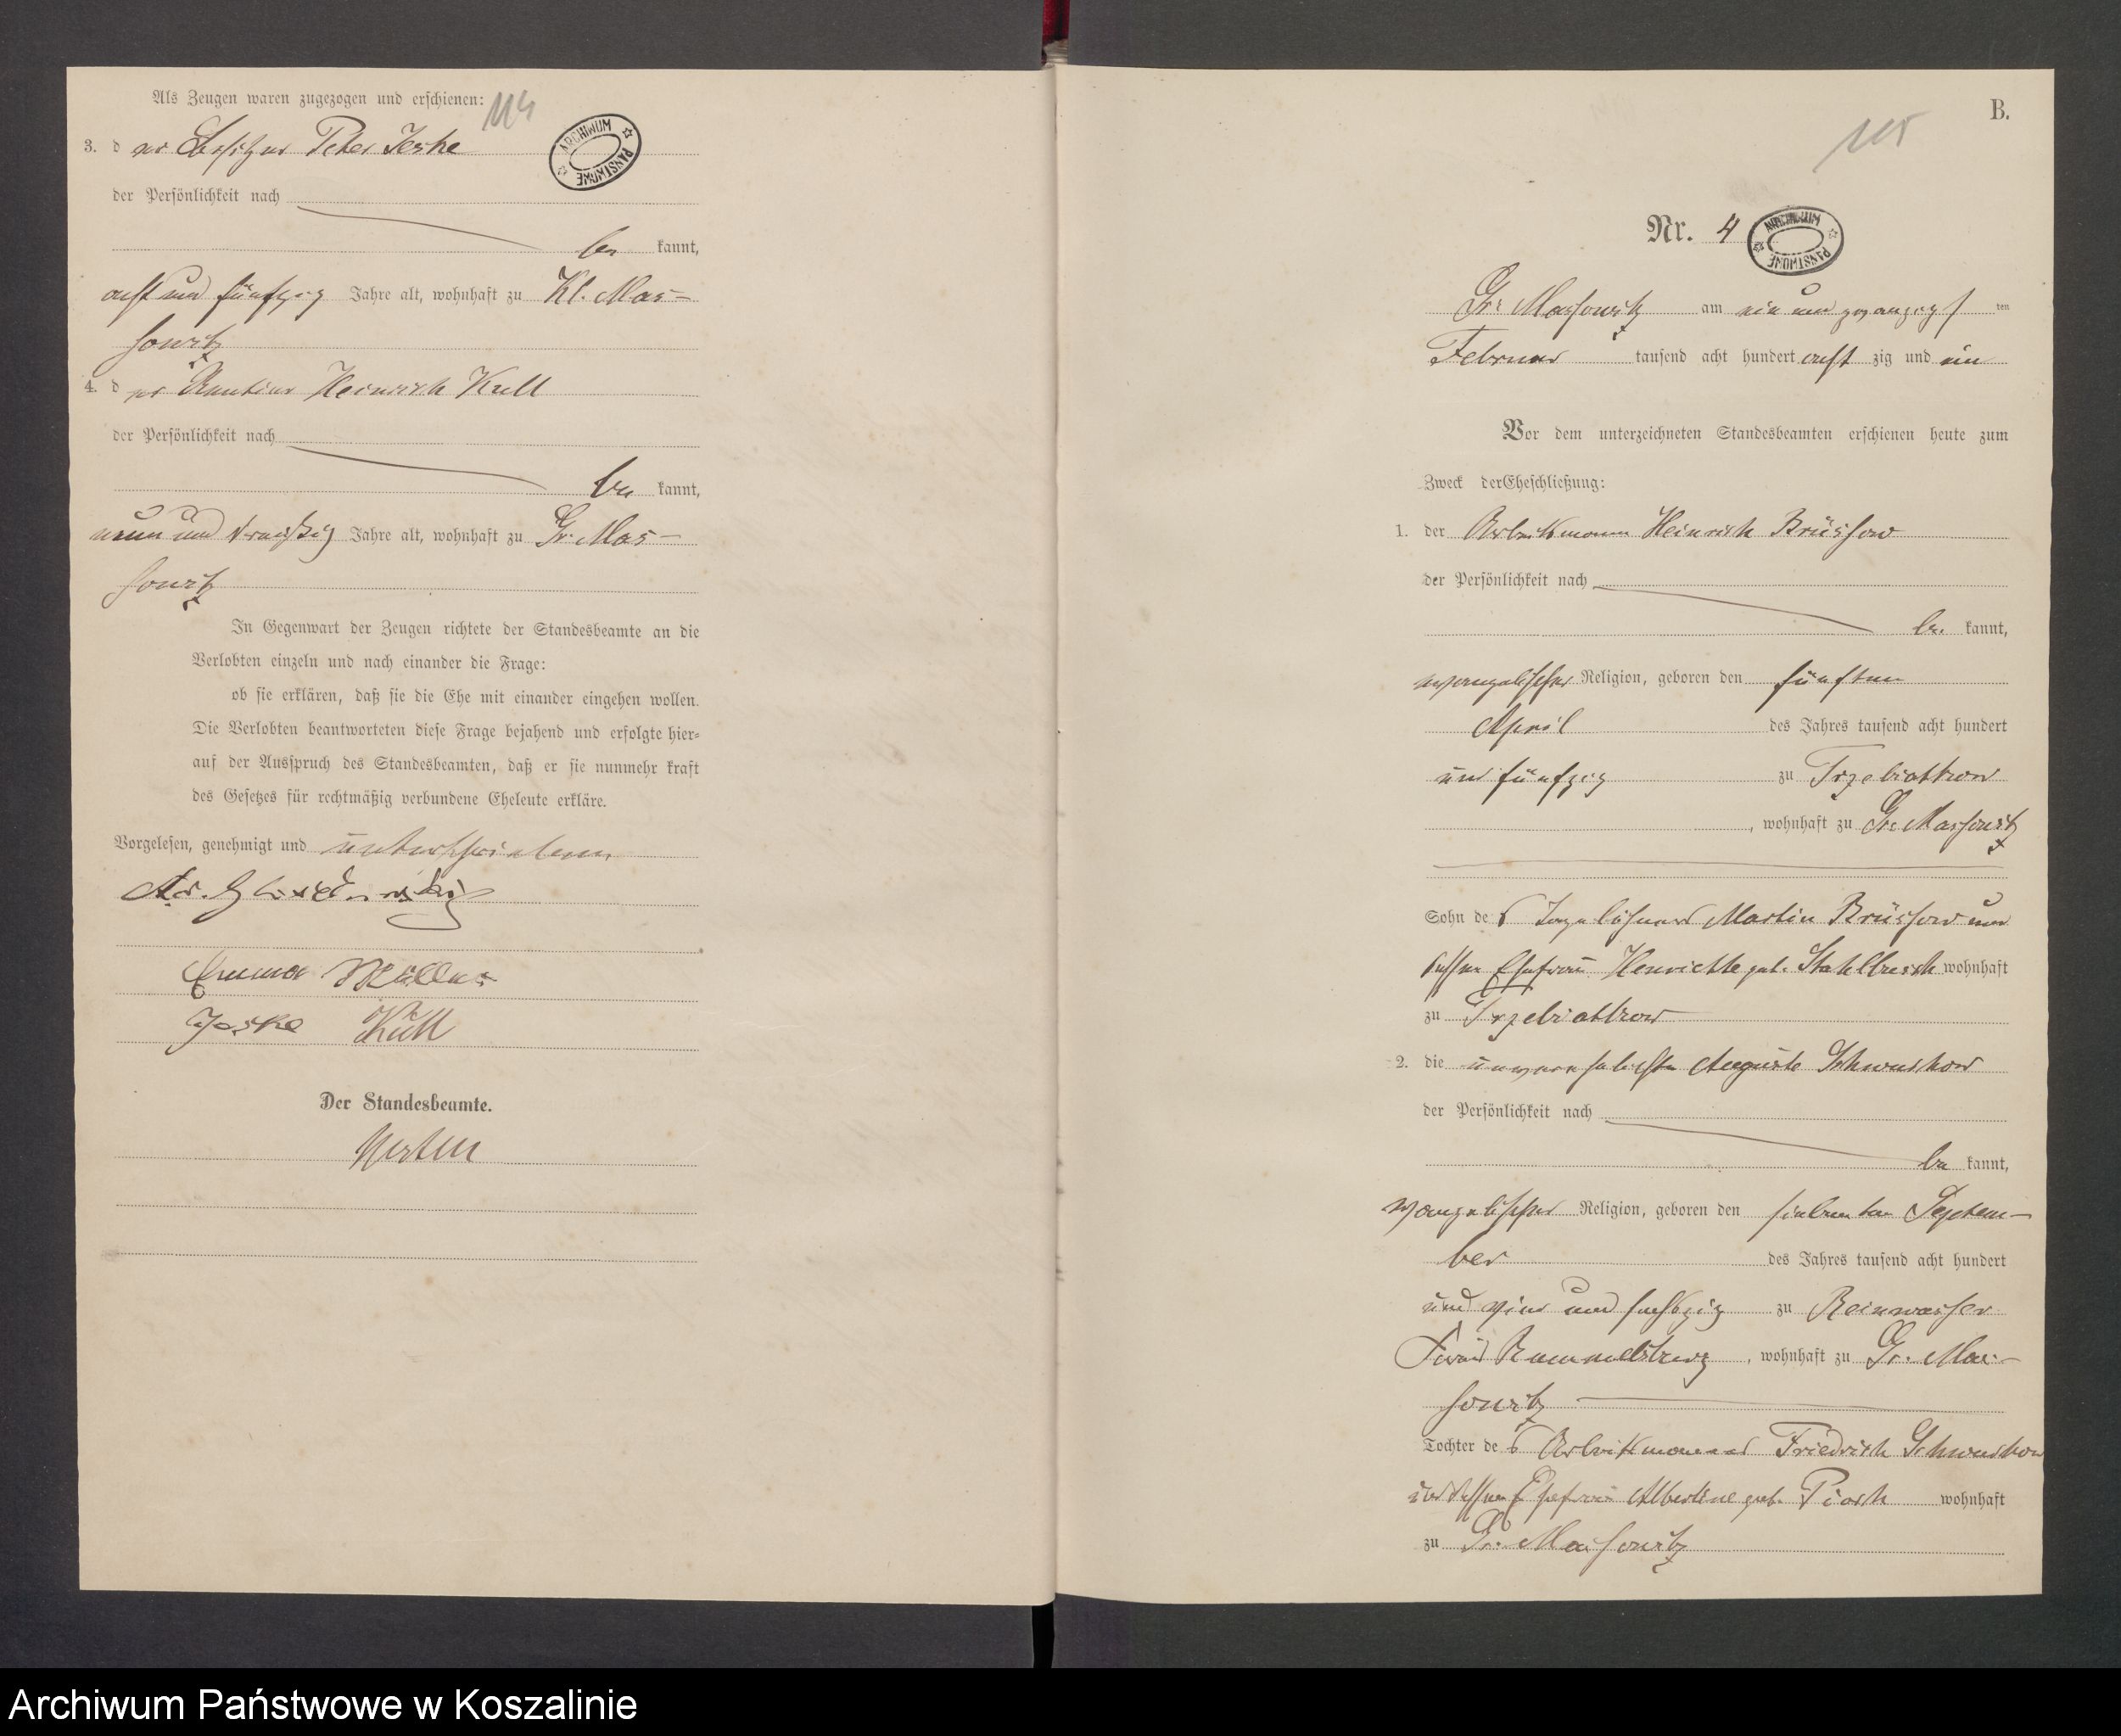 Als Zeugen waren zugezogen und erschienen:
114
3. d er Besitzer Peter Jeske
ARCHIWUM PAŃSTWOWE
der Persönlichkeit nach
be kannt,
acht und fünfzig Jahre alt, wohnhaft zu Kl. Mas-
sowitz
4. d er Rentier Heinrich Krell
der Persönlichkeit nach
be kannt,
neun und dreißig Jahre alt, wohnhaft zu Gr. Mas-
sowitz
In Gegenwart der Zeugen richtete der Standesbeamte an die
Verlobten einzeln und nach einander die Frage:
ob sie erklären, daß sie die Ehe mit einander eingehen wollen.
Die Verlobten beantworteten diese Frage bejahend und erfolgte hier-
auf der Ausspruch des Standesbeamten, daß er sie nunmehr kraft
des Gesetzes für rechtmäßig verbundene Eheleute erkläre.
Vorgelesen, genehmigt und unterschrieben
Emma Müller
Jeske Krell
Der Standesbeamte.
B.
115
Nr. 4
ARCHIWUM PAŃSTWOWE
Gr. Massowitz am ein und zwanzigs ten
Februar tausend acht hundert acht zig und ein
Vor dem unterzeichneten Standesbeamten erschienen heute zum
Zweck der Eheschließung:
1. der Arbeitsmann Heinrich Brüssow
der Persönlichkeit nach
be kannt,
evangelischer Religion, geboren den fünften
April des Jahres tausend acht hundert
und fünfzig zu Trzebiatkow
, wohnhaft zu Gr. Massowitz
Sohn des Tagelöhners Martin Brüssow und
dessen Ehefrau Henriette geb. Stahlbusch wohnhaft
zu Trzebiatkow
2. die unverehelichte Auguste Schwuchow
der Persönlichkeit nach
be kannt,
evangelischer Religion, geboren den siebenten Septem-
ber des Jahres tausend acht hundert
und vier und sechszig zu Reinwasser
Kreis Rummelsburg, wohnhaft zu Gr. Mas-
sowitz
Tochter des Arbeitsmannes Friedrich Schwuchow
und dessen Ehefrau Albertine geb. Piach wohnhaft
zu Gr. Massowitz
Archiwum Państwowe w Koszalinie